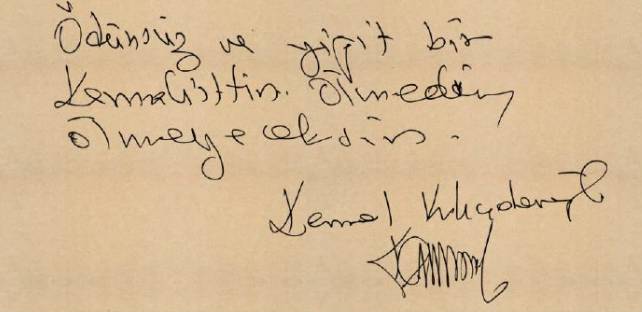 Ödünsüz ve yiğit bir
Kemalisttin. Ölmedin,
ölmeyeceksin.
Kemal Kılıçdaroğlu